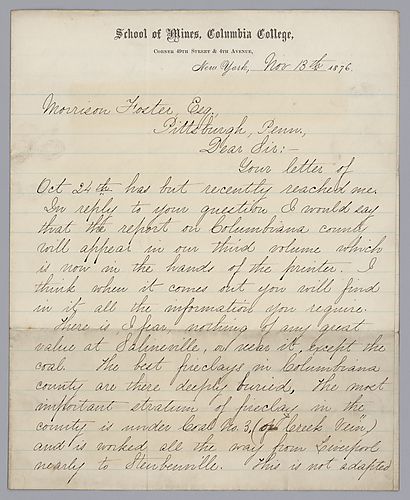 School of Mines, Columbia College,
Corner 49th Street & 4th Avenue,
New York, Nov 13th 1876.
Morrison Foster, Esq,
Pittsburgh, Penn.,
Dear Sir:—
Your letter of
Oct 24th has but recently reached me.
In reply to your question I would say
that the report on Columbiana county
will appear in our third volume which
is now in the hands of the printer. I
think when it comes out you will find
in it all the information you require.
There is I fear, nothing of any great
value at Salineville, or near it, except the
coal. The best fireclays in Columbiana
county are there deeply buried, The most
important stratum of fireclay in the
county is under Coal No. 3, (or "Creek Vein")
and is worked all the way from Liverpool
nearly to Steubenville. This is not adapted